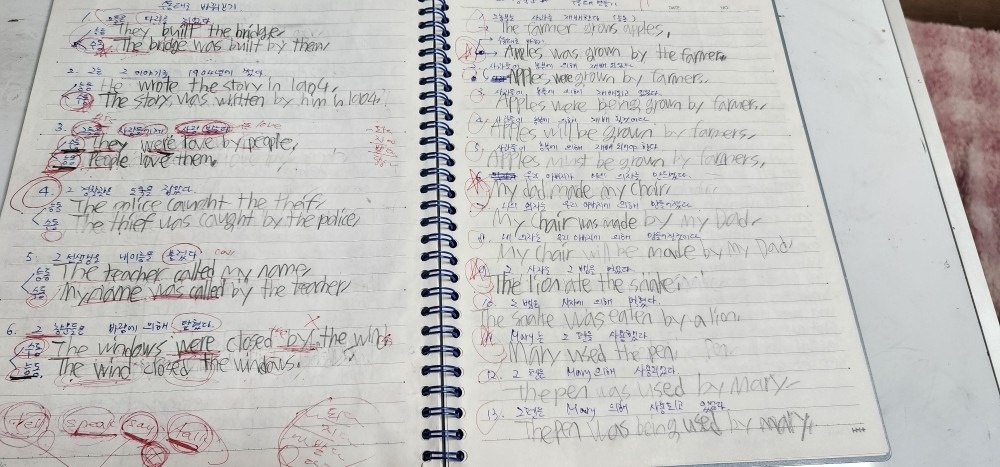 수동태로 바꿔쓰기
1. 그들은 다리를 지었다.
능동 They built the bridge.
수동 The bridge was built by them.
2. 그는 그 이야기를 1904년에 썼다.
능동 He wrote the story in 1904.
수동 The story was written by him in 1904.
3. 그들은 사람들에게 사랑 받는다
수동 They were love by people.
능동 People love them.
4. 그 경찰은 도둑을 잡았다.
능동 The police caught the thief.
수동 The thief was caught by the police.
5. 그 선생님은 내 이름을 불렀다. call
능동 The teacher called my name.
수동 My name was called by the teacher
6. 그 창문들은 바람에 의해 닫혔다.
수동 The windows were closed by the wind.
능동 The wind closed the windows.
tell speak say talk
The farmer grows apples.
Apples was grown by the farmer.
Apples were grown by farmers.
Apples were being grown by farmers.
4. 사과들이 농부에 의해
Apples will be grown by farmers.
5. 사과들이 농부에 의해 재배 되어야 한다.
Apples must be grown by farmers.
6. 우리 아빠가 나의 의자를 만드셨다.
My dad made my chair.
7. 나의 의자는 우리 아빠에 의해 만들어졌다.
My chair was made by my Dad.
8. 내 의자는 우리 아빠에 의해 만들어질것이다.
My chair will be made by my Dad
9. 그 사자는 그 뱀을 먹었다.
The lion ate the snake.
10. 그 뱀은 사자에 의해 먹혔다.
The snake was eaten by a lion.
11. Mary는 그 펜을 사용했다
Mary used the pen.
12. 그 펜은 Mary 의해 사용되었다.
the pen was used by Mary.
13. 그 펜은 Mary 의해 사용되고 있었다.
The pen was being used by mary.